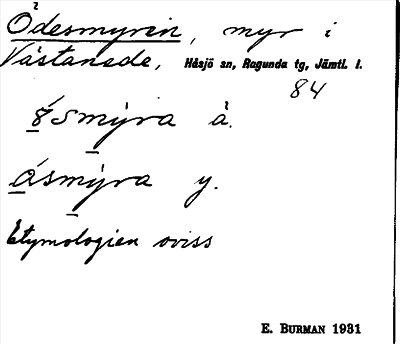 Ödesmyren, myr i
Västanede, Håsjö sn, Ragunda tg, Jämtl. l.
84
ȣ́smýra å.
ɑ́smýra y.
Etymologien oviss
E. BURMAN 1931